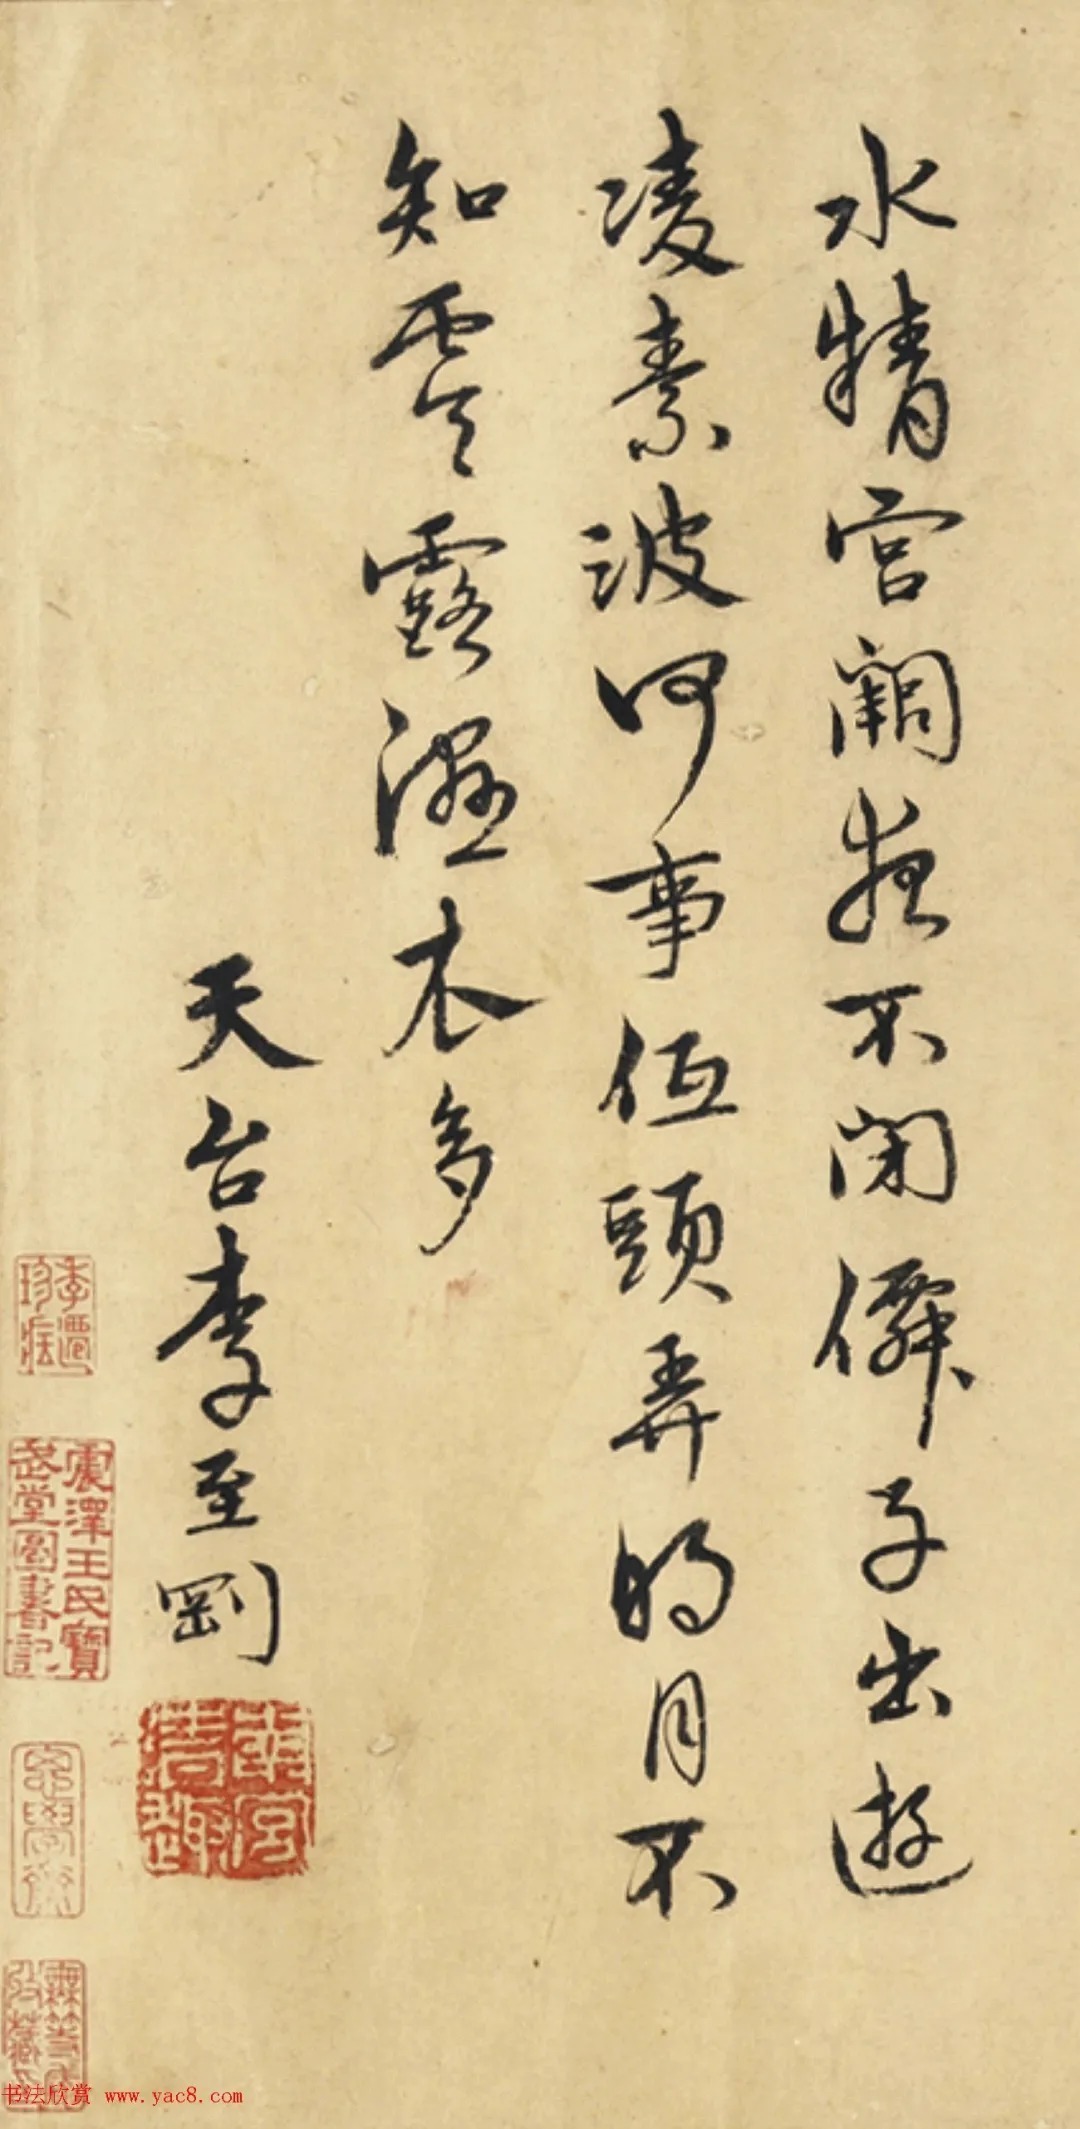 水精宮闕夜不閉僊子出遊
凌素波何事低頭弄明月不
知零露濕衣多
天台李至剛
震澤王氏寶
堂圖書記
书法欣赏 www.yac8.com